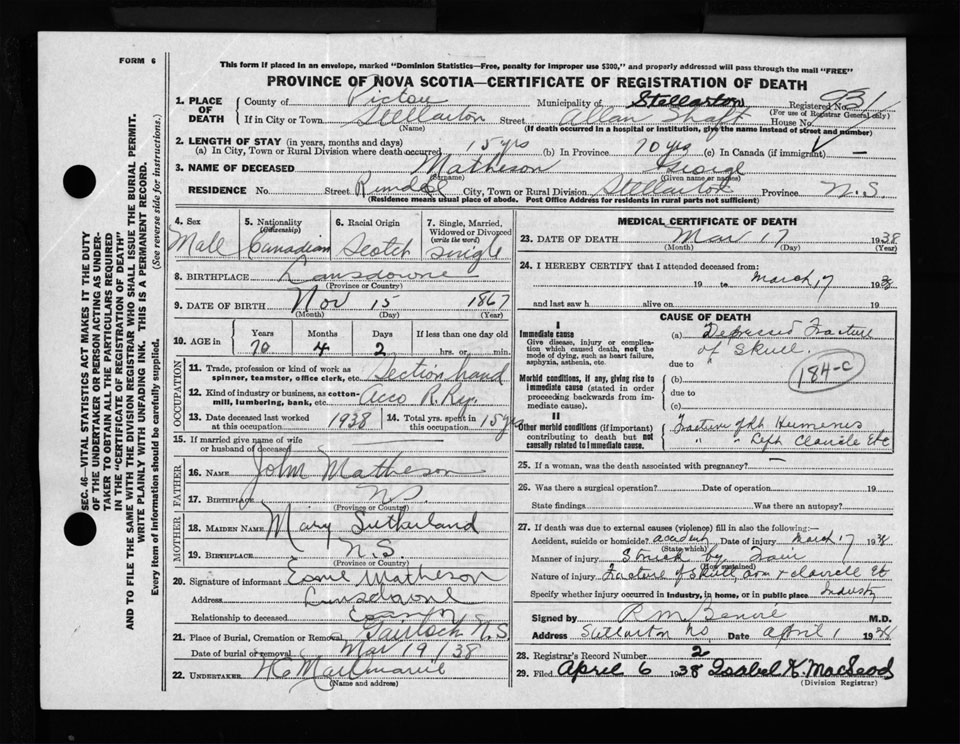 FORM 6
This form if placed in an envelope, marked "Dominion Statistics—Free, penalty for improper use $300," and properly addressed will pass through the mail "FREE"
PROVINCE OF NOVA SCOTIA—CERTIFICATE OF REGISTRATION OF DEATH
SEC. 46—VITAL STATISTICS ACT MAKES IT THE DUTY
OF THE UNDERTAKER OR PERSON ACTING AS UNDER-
TAKER TO OBTAIN ALL THE PARTICULARS REQUIRED
IN THE "CERTIFICATE OF REGISTRATION OF DEATH"
AND TO FILE THE SAME WITH THE DIVISION REGISTRAR WHO SHALL ISSUE THE BURIAL PERMIT.
WRITE PLAINLY WITH UNFADING INK. THIS IS A PERMANENT RECORD.
Every item of Information should be carefully supplied. (See reverse side for instructions.)
1. PLACE OF DEATH County of Pictou Municipality of Stellarton Registered No. 931
(For use of Registrar General only)
If in City or Town Stellarton Street Allan Shaft House No.
(Name) (If death occurred in a hospital or institution, give the name instead of street and number)
2. LENGTH OF STAY (in years, months and days)
(a) In City, Town or Rural Division where death occurred 15 yrs (b) In Province 70 yrs (c) In Canada (if immigrant) —
3. NAME OF DECEASED Matheson George
(Surname) (Given name or names)
RESIDENCE No. Street City, Town or Rural Division Stellarton Province N.S.
(Residence means usual place of abode. Post Office Address for residents in rural parts not sufficient)
4. Sex Male
5. Nationality (Citizenship) Canadian
6. Racial Origin Scotch
7. Single, Married, Widowed or Divorced (write the word) Single
8. BIRTHPLACE Lansdowne
(Province or Country)
9. DATE OF BIRTH Nov 15 1867
(Month) (Day) (Year)
10. AGE in Years Months Days If less than one day old
70 4 2 hrs. or min.
OCCUPATION
11. Trade, profession or kind of work as spinner, teamster, office clerk, etc. Section hand
12. Kind of industry or business, as cotton-mill, lumbering, bank, etc. R. Ry.
13. Date deceased last worked at this occupation 1938
14. Total yrs. spent in this occupation 15 yrs
15. If married give name of wife or husband of deceased
FATHER
16. NAME John Matheson
17. BIRTHPLACE N.S.
(Province or Country)
MOTHER
18. MAIDEN NAME Mary Sutherland
19. BIRTHPLACE N.S.
(Province or Country)
20. Signature of informant Matheson
Address Lansdowne
Relationship to deceased
21. Place of Burial, Cremation or Removal Gairloch N.S.
Date of burial or removal Mar 19/38
22. UNDERTAKER
(Name and address)
MEDICAL CERTIFICATE OF DEATH
23. DATE OF DEATH Mar 17 1938
(Month) (Day) (Year)
24. I HEREBY CERTIFY that I attended deceased from:
19 to March 17 1938
and last saw h alive on 19
CAUSE OF DEATH
I
Immediate cause
Give disease, injury or complication which caused death, not the mode of dying, such as heart failure, asphyxia, asthenia, etc.
(a) Depressed Fracture
of Skull.
due to
184-c
Morbid conditions, if any, giving rise to immediate cause (stated in order proceeding backwards from immediate cause).
(b)
due to
(c)
II
Other morbid conditions (if important) contributing to death but not causally related to immediate cause.
Fracture of Rh Humerus
" " Left Clavicle Etc
25. If a woman, was the death associated with pregnancy? —
26. Was there a surgical operation? Date of operation 19
State findings Was there an autopsy?
27. If death was due to external causes (violence) fill in also the following:—
Accident, suicide or homicide? accident Date of injury March 17 1938
(State which)
Manner of injury Struck by Train
(How sustained)
Nature of injury Fracture of Skull, arm & clavicle Etc
Specify whether injury occurred in Industry, in home, or in public place Industry
Signed by M.D.
Address Stellarton NS Date April 1 1938
28. Registrar's Record Number 2
29. Filed April 6 1938 Isabel K. MacLeod
(Division Registrar)